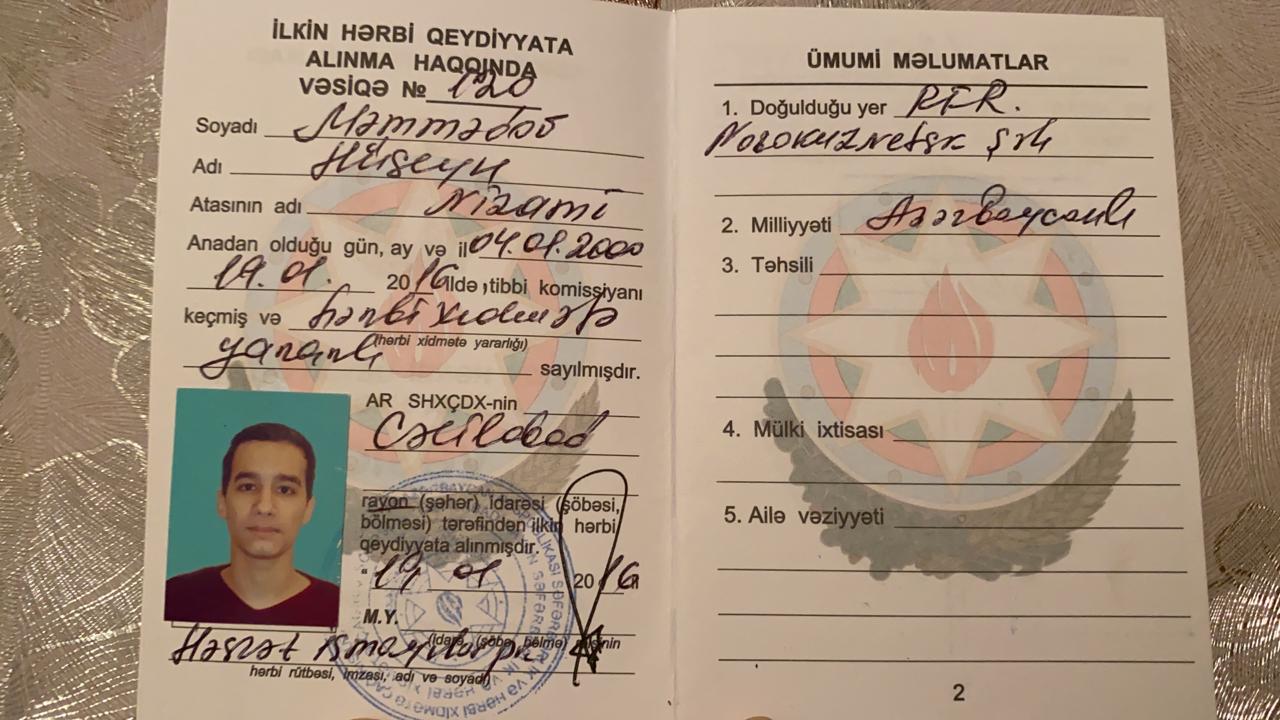 İLKİN HƏRBİ QEYDİYYATA
ALINMA HAQQINDA
VƏSİQƏ № 120
Soyadı Məmmədov
Adı Hüseyn
Atasının adı Nizami
Anadan olduğu gün, ay və il 04.01.2000
19.01. 2016 ildə, tibbi komissiyanı
keçmiş və hərbi xidmətə
(hərbi xidmətə yararlığı)
yararlı sayılmışdır.
AR SHXÇDX-nin
Cəlilabad
rayon (şəhər) idarəsi (şöbəsi,
bölməsi) tərəfindən ilkin hərbi
qeydiyyata alınmışdır.
"19 01 2016
M.Y.
(idarə (şöbə, bölmə) rəisinin
Həsrət
hərbi rütbəsi, imzası, adı və soyadı)
ÜMUMİ MƏLUMATLAR
1. Doğulduğu yer RFR.
Novokuznetsk şəh
2. Milliyyəti Azərbaycanlı
3. Təhsili
4. Mülki ixtisası
5. Ailə vəziyyəti
2